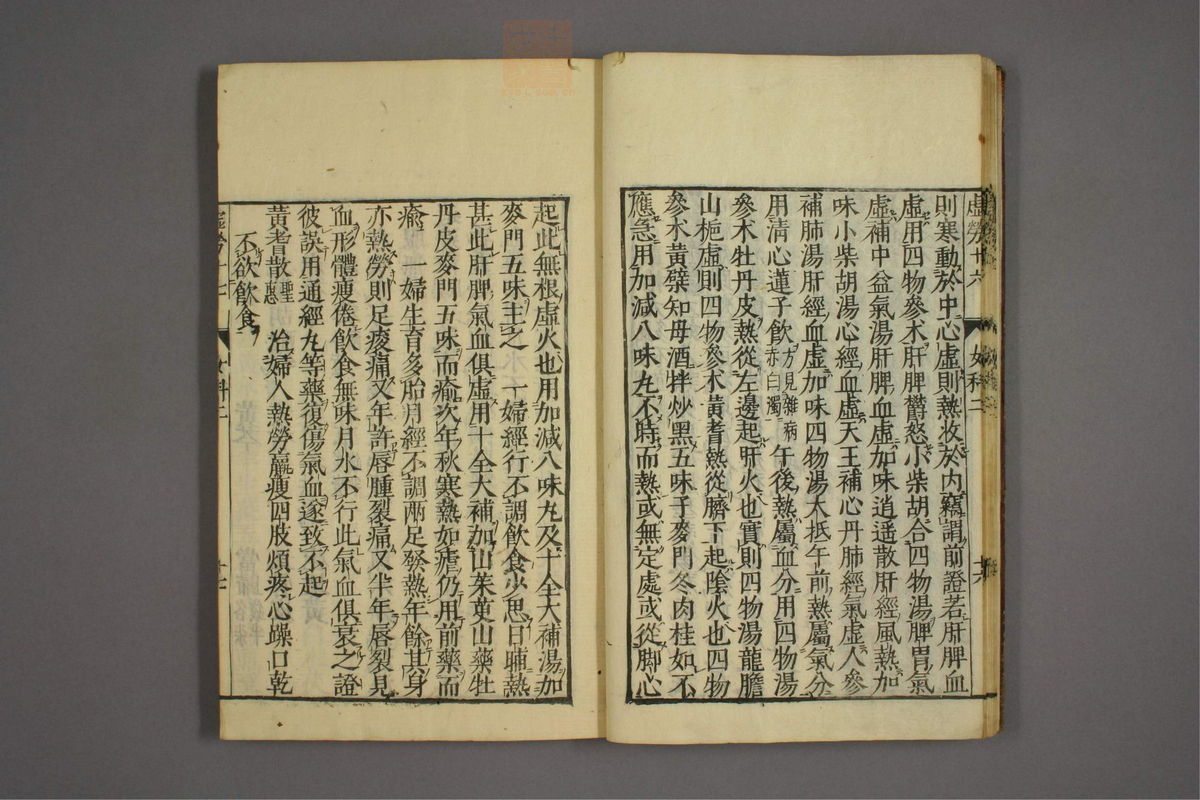 虛勞十六
女科二
十六
則寒動於中心虛則熱收於內竊謂前證若肝脾血
虛用四物參朮肝脾欝怒小柴胡合四物湯脾胃氣
虛補中益氣湯肝脾血虛加味逍遥散肝經風熱加
味小柴胡湯心經血虛天王補心丹肺經氣虛人參
補肺湯肝經血虛加味四物湯大抵午前熱屬氣分
用清心蓮子飲方見雜病赤白濁午後熱屬血分用四物湯
參朮牡丹皮熱從左邊起肝火也實則四物湯龍膽
山梔虛則四物參朮黃耆熱從臍下起陰火也四物
參朮黃蘗知母酒拌炒黑五味子麥門冬肉桂如不
應急用加減八味丸不時而熱或無定處或從脚心
起此無根虛火也用加減八味丸及十全大補湯加
麥門五味主之 一婦經行不調飲食少思日晡熱
甚此肝脾氣血俱虛用十全大補加山茱萸山藥牡
丹皮麥門五味而瘉次年秋寒熱如瘧仍用前藥而
瘉 一婦生育多胎月經不調兩足發熱年餘其身
亦熱勞則足痠痛又年許唇腫裂痛又半年唇裂見
血形體瘦倦飲食無味月水不行此氣血俱衰之證
彼誤用通經丸等藥復傷氣血遂致不起
黃耆散聖惠 治婦人熱勞羸瘦四肢煩疼心躁口乾
不欲飲食